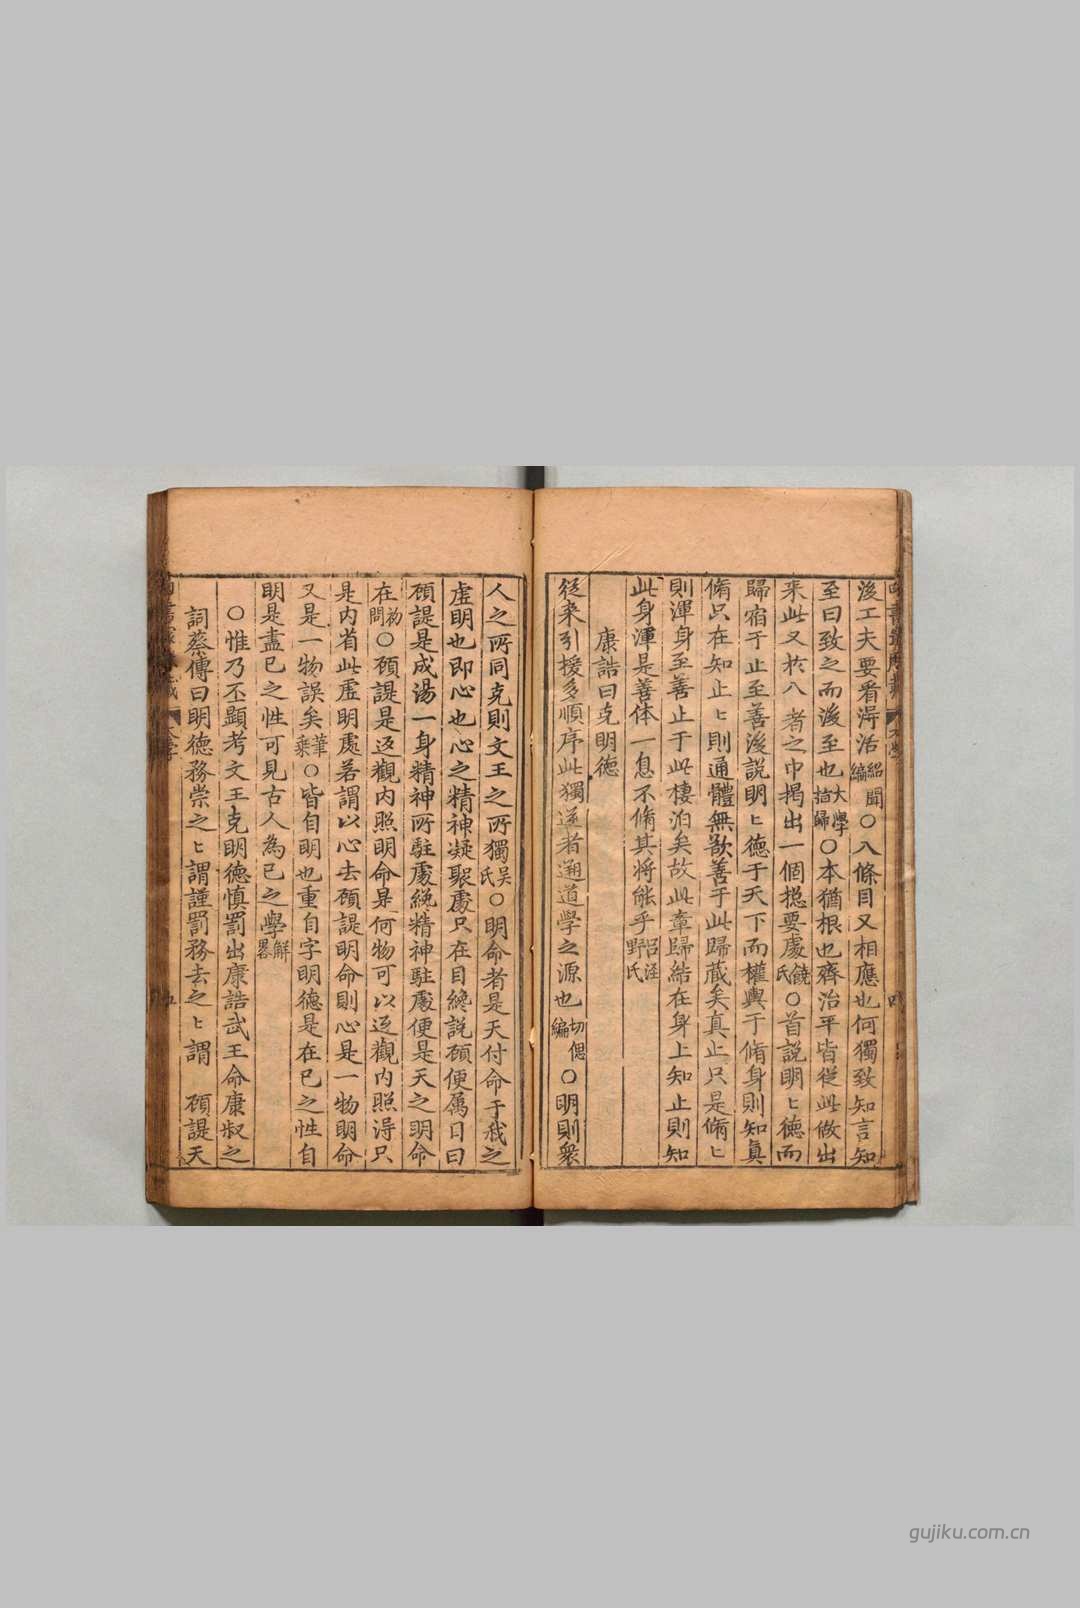 後工夫要看得活紹聞編○八條目又相應也何獨致知言知
至曰致之而後至也大學拈歸○本猶根也齊治平皆從此做出
来此又於八者之中揭出一個揔要處饒氏○首說明〻德而
歸宿于止至善後說明〻德于天下而權輿于脩身則知真
脩只在知止〻則通體無歉善于此歸蔵矣真止只是脩〻
則渾身至善止于此棲泊矣故此章歸結在身上知止則知
此身渾是善体一息不脩其將能乎呂涇野氏
康誥曰克明德
從来引援多順序此獨逆者遡道學之源也切偲編○明則衆
人之所同克則文王之所獨吴氏○明命者是天付命于我之
虚明也即心也心之精神凝聚處只在目終說顧便属目曰
顧諟是成湯一身精神所駐處終精神駐處便是天之明命
在初問○顧諟是返觀内照明命是何物可以返觀内照淂只
是内省此虚明處若謂以心去顧諟明命則心是一物明命
又是一物誤矣華乘○皆自明也重自字明德是在已之性自
明是盡已之性可見古人為已之學解畧
○惟乃丕顯考文王克明德慎罰出康誥武王命康叔之
詞蔡傳曰明德務崇之〻謂謹罰務去之〻謂 顧諟天
大學
gujiku.com.cn